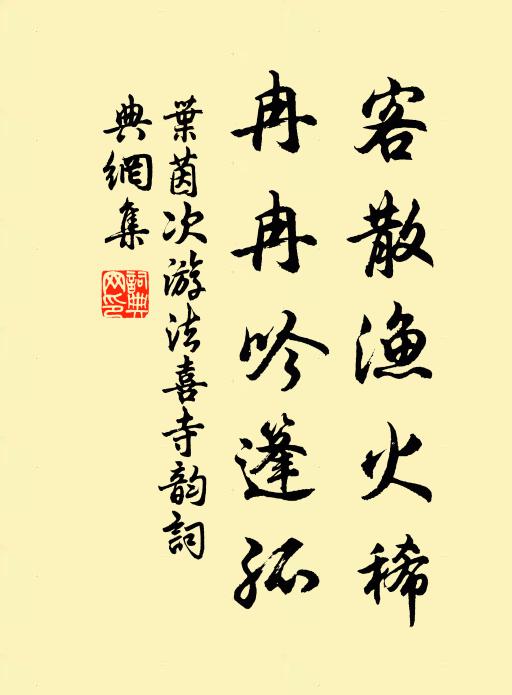 客散漁火稀
冉冉吟篷孤
葉茵次游法喜寺韵詞
典網集
詞典網印